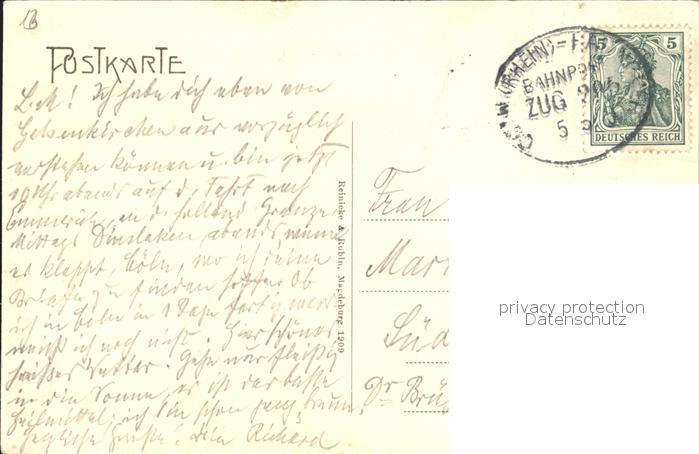 13
POSTKARTE
L. M! Ich habe dich eben von
Gelsenkirchen aus vorzüglich
verstehen können u. bin jetzt
Uhr abends auf d. Fahrt nach
Emmerich, an d. holländ. Grenze.
Mittags Dinslaken, abends, wenn
es klappt, Cöln, wo ich deine
Briefe zu finden hoffe. Ob
ich in Cöln in 1 Tage fertig werde
weiß ich noch nicht. Hier schönes
heißes Wetter. Gehe nur fleißig
in die Sonne, es ist das beste
Heilmittel, ich bin schon ganz braun.
Herzliche Grüße! dein Richard
Reinicke & Rubin, Magdeburg 1909
CÖLN (RHEIN)=
BAHNPOST
ZUG
5 5
5 5
DEUTSCHES REICH
Frau
Süd
Dr Brü
privacy protection
Datenschutz